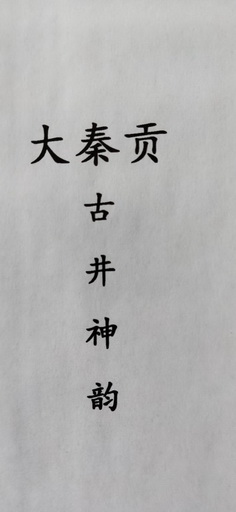 大秦贡
古
井
神
韵